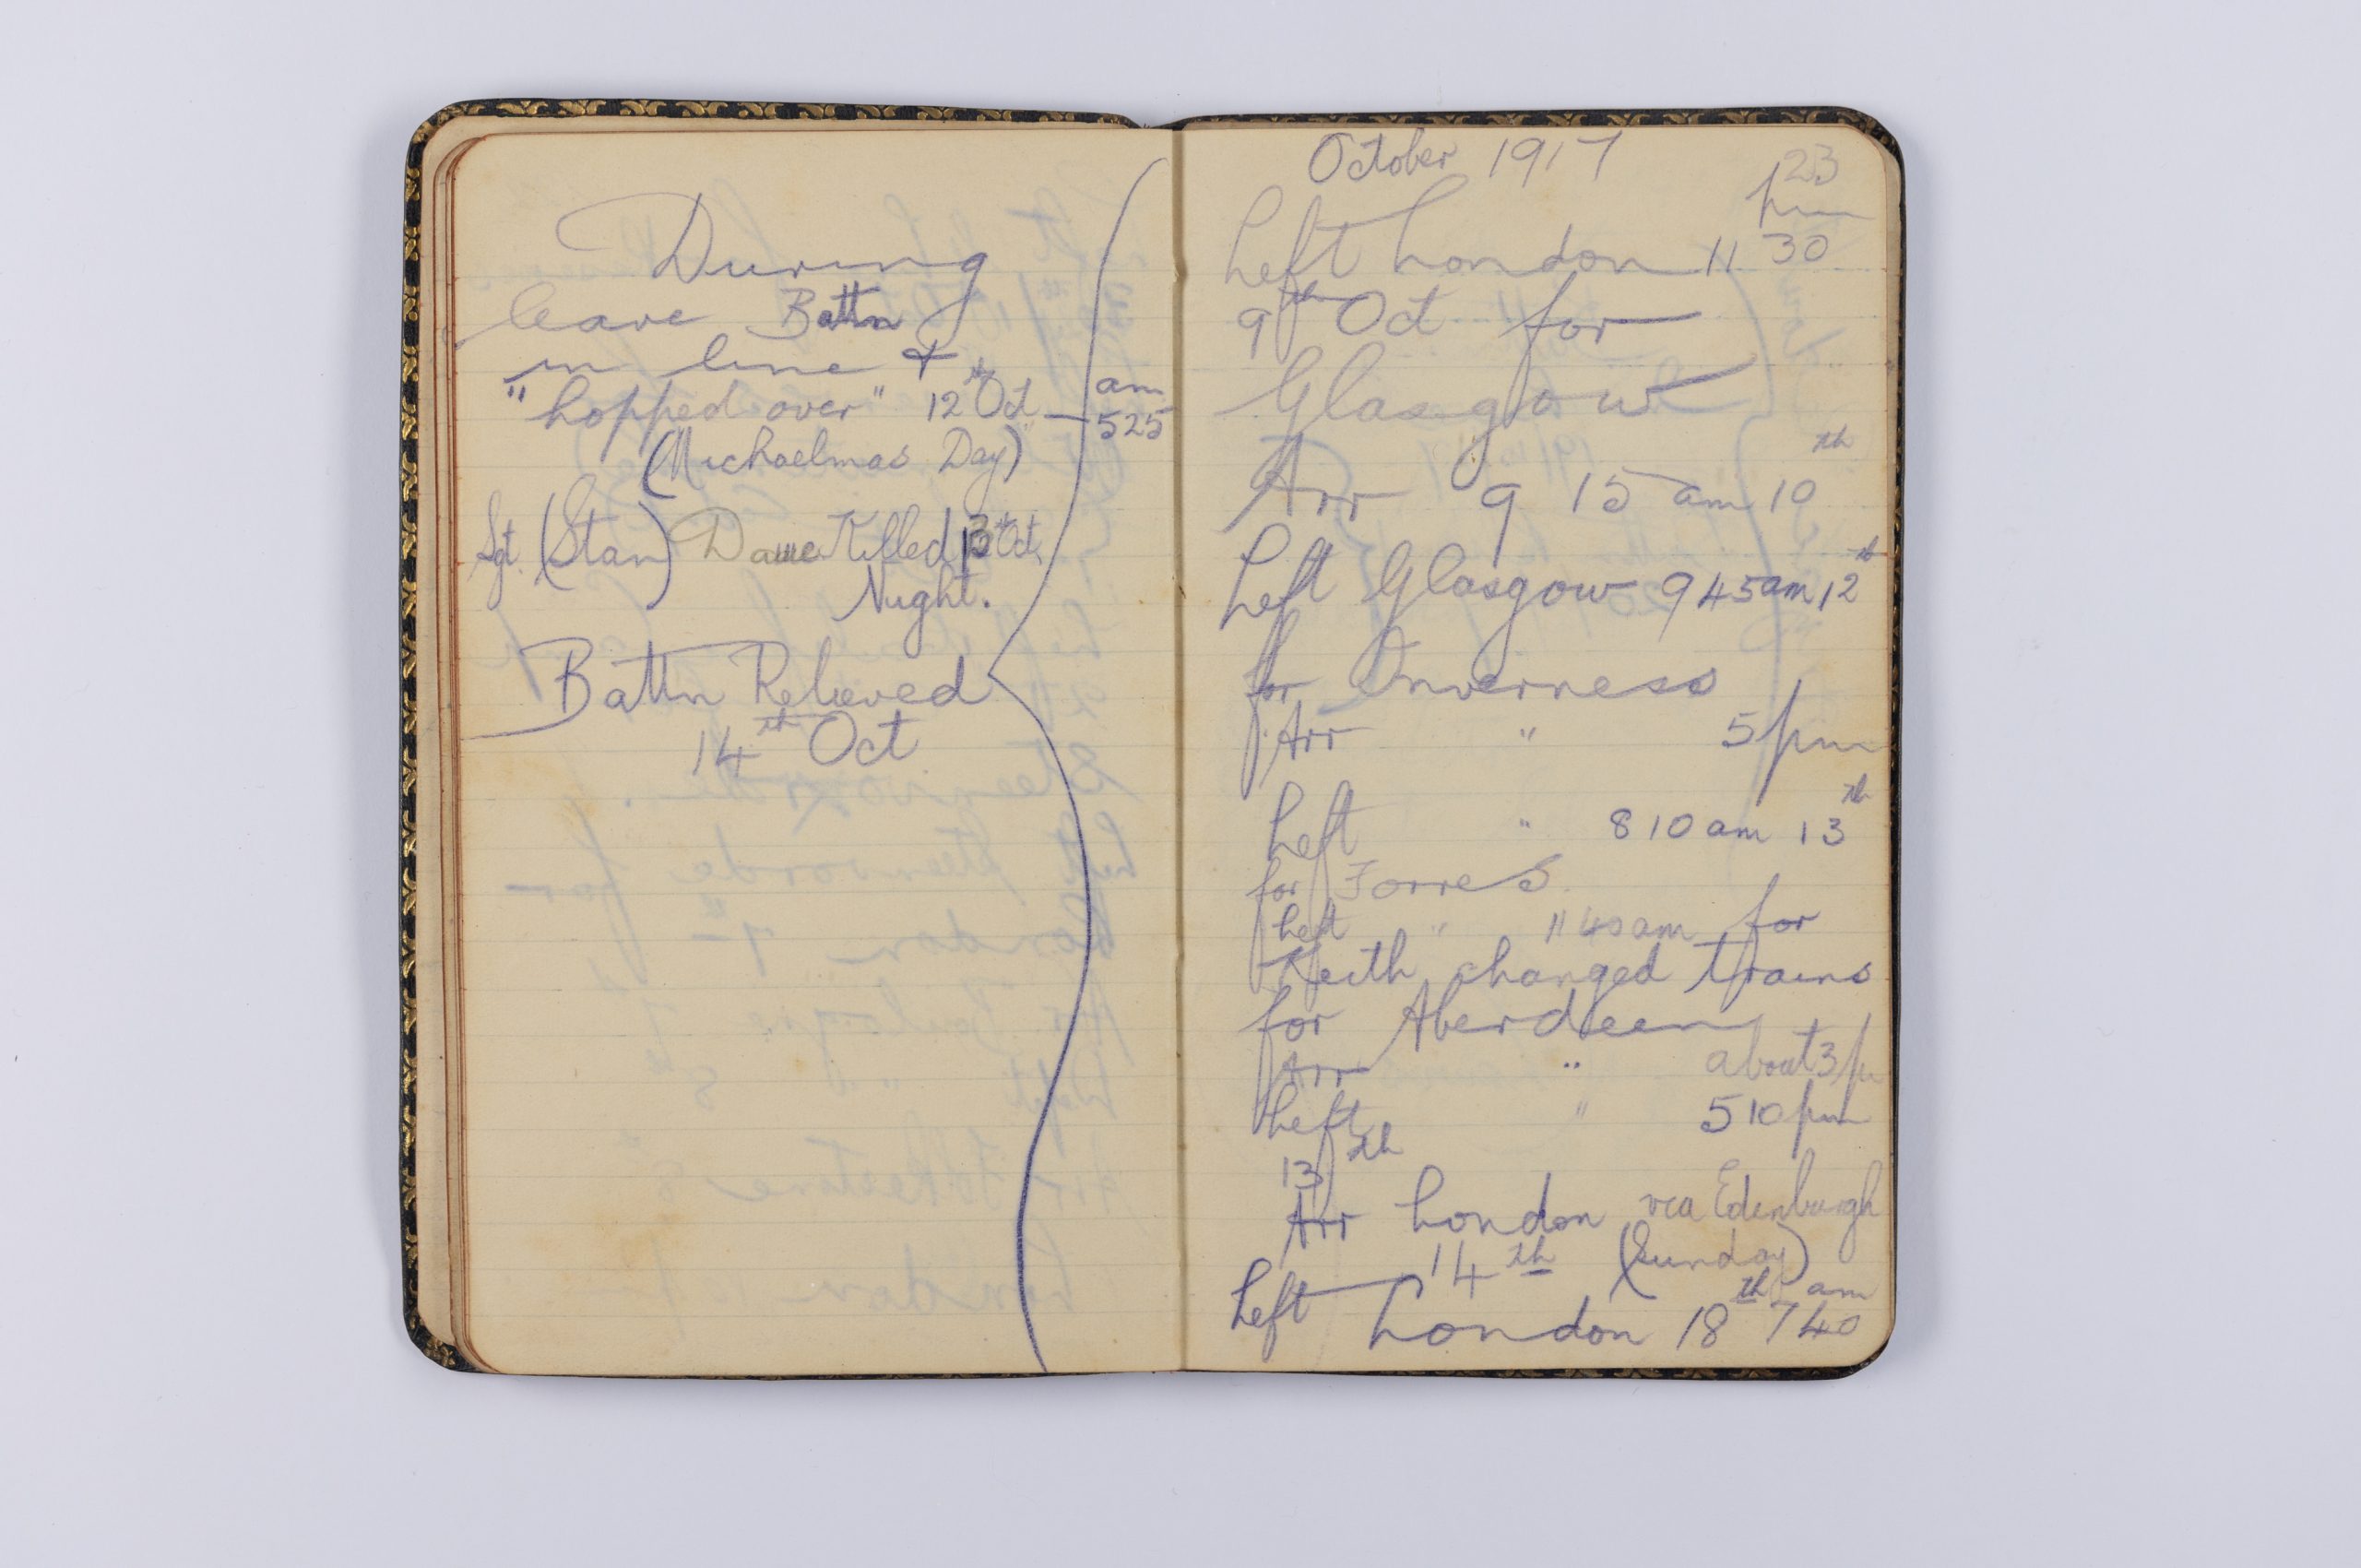 During
leave Battn
in line &
"hopped over" 12th Oct — am 525
(Michaelmas Day)
Sgt. (Stan) Killed 13th Oct.
Night.
Battn Relieved
14th Oct
October 1917
23
pm
Left London 11 30
9th Oct for
Glasgow
Arr 9 15 am 10th
Left Glasgow 9 45 am 12th
for Inverness
Arr " 5 pm
Left " 8 10 am 13th
for Forres
Left " 11 40 am for
Keith changed trains
for Aberdeen
Arr " about 3 p
Left " 5 10 pm
13th
Arr London via Edenburgh
14th (Sunday)
Left London 18th 7 40 am